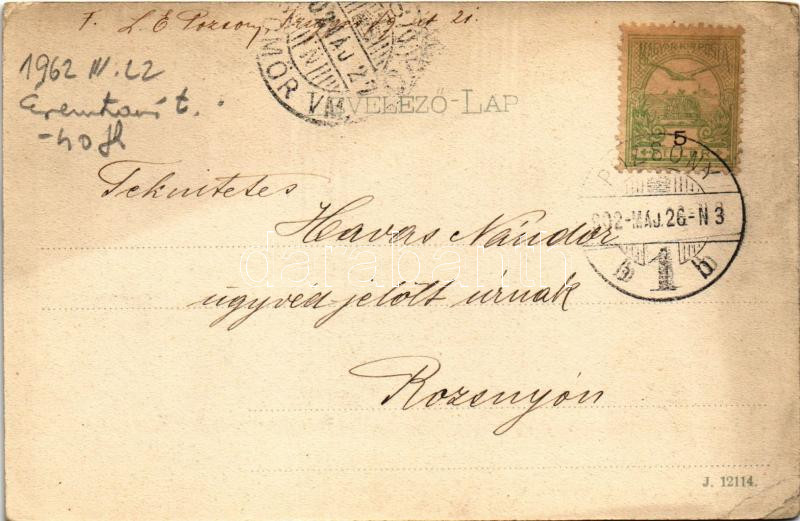 F. L. E. Pozsony,
1962 IV. 22
-40 fl
902 MÁJ 27
MÖR VM.
VELEZŐ-LAP
MAGYAR KIR. POSTA
5
POZSONY
902-MÁJ.26-N3
1
Tekintetes
Havas Nándor
ügyvéd-jelölt úrnak
Rozsnyón
darabanth
J. 12114.